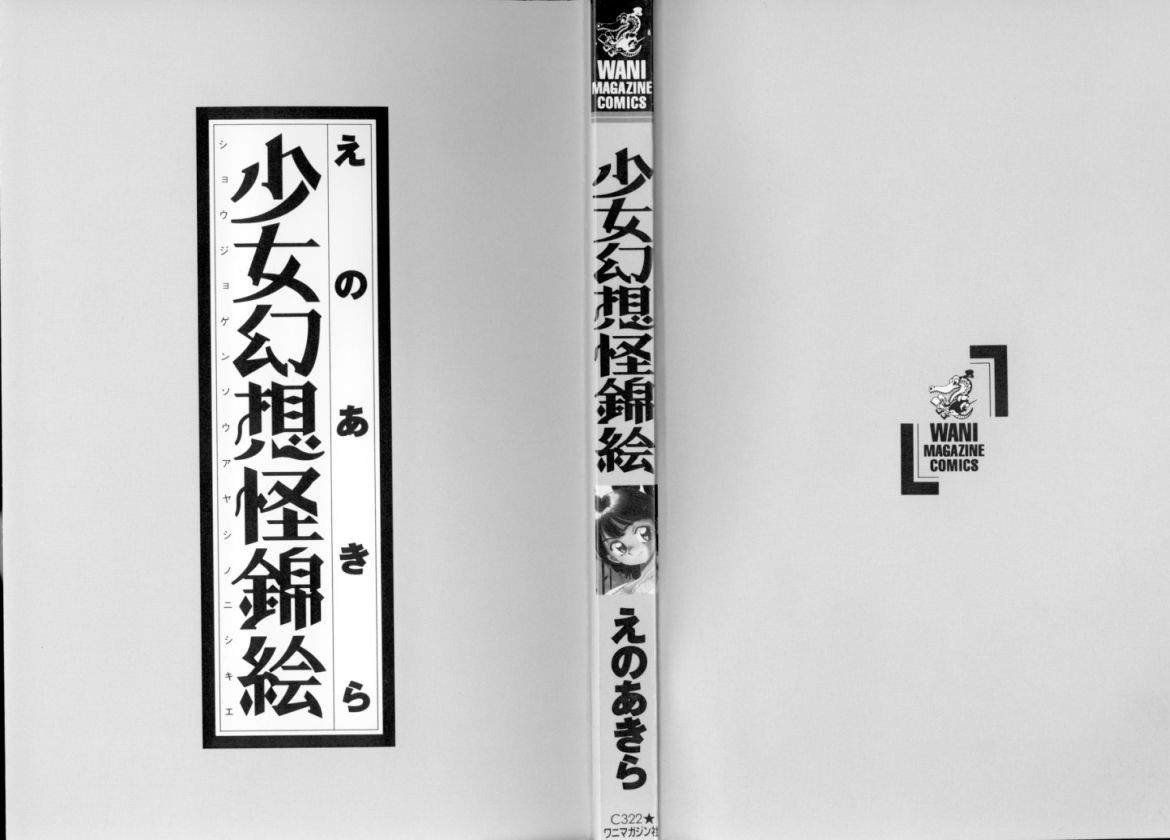 えのあきら
少女幻想怪錦絵
ショウジョゲンソウアヤシノニシキエ
WANI
MAGAZINE
COMICS
少女幻想怪錦絵
えのあきら
C322★
ワニマガジン社
WANI
MAGAZINE
COMICS